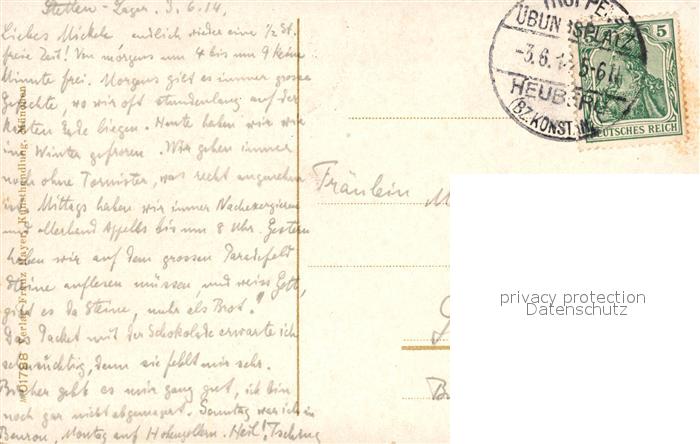 Stetten-Lager. 3.6.14.
Liebes Mickele endlich wieder eine 1/2 St.
freie Zeit! Von morgens um 4 bis um 9 keine
Minute frei. Morgens gibt es immer grosse
Gefechte, wo wir oft stundenlang auf der
kalten Erde liegen. Heute haben wir wie
im Winter gefroren. Wir gehen immer
noch ohne Tornister, was recht angenehm
ist. Mittags haben wir immer Nachexerzieren
und allerhand Appells bis um 8 Uhr. Gestern
haben wir auf dem grossen Paradefeld
Steine auflesen müssen und weiss Gott,
gibt es da Steine, mehr als Brot."
Das Packet mit der Schokolade erwarte ich
sehnsüchtig, denn sie fehlt mir sehr.
Bisher geht es mir ganz gut, ich bin
noch gar nicht abgemagert. Sonntag war ich in
Beuron, Montag auf Hohenzollern. Heil!
01788 Verlag Franz Mayer, Kunsthandlung, München
TRUPPEN
ÜBUNGSPLATZ
-3.6.14 5-6
HEUBERG
(BZ.KONST.)
5
DEUTSCHES REICH
Fräulein M
privacy protection
Datenschutz